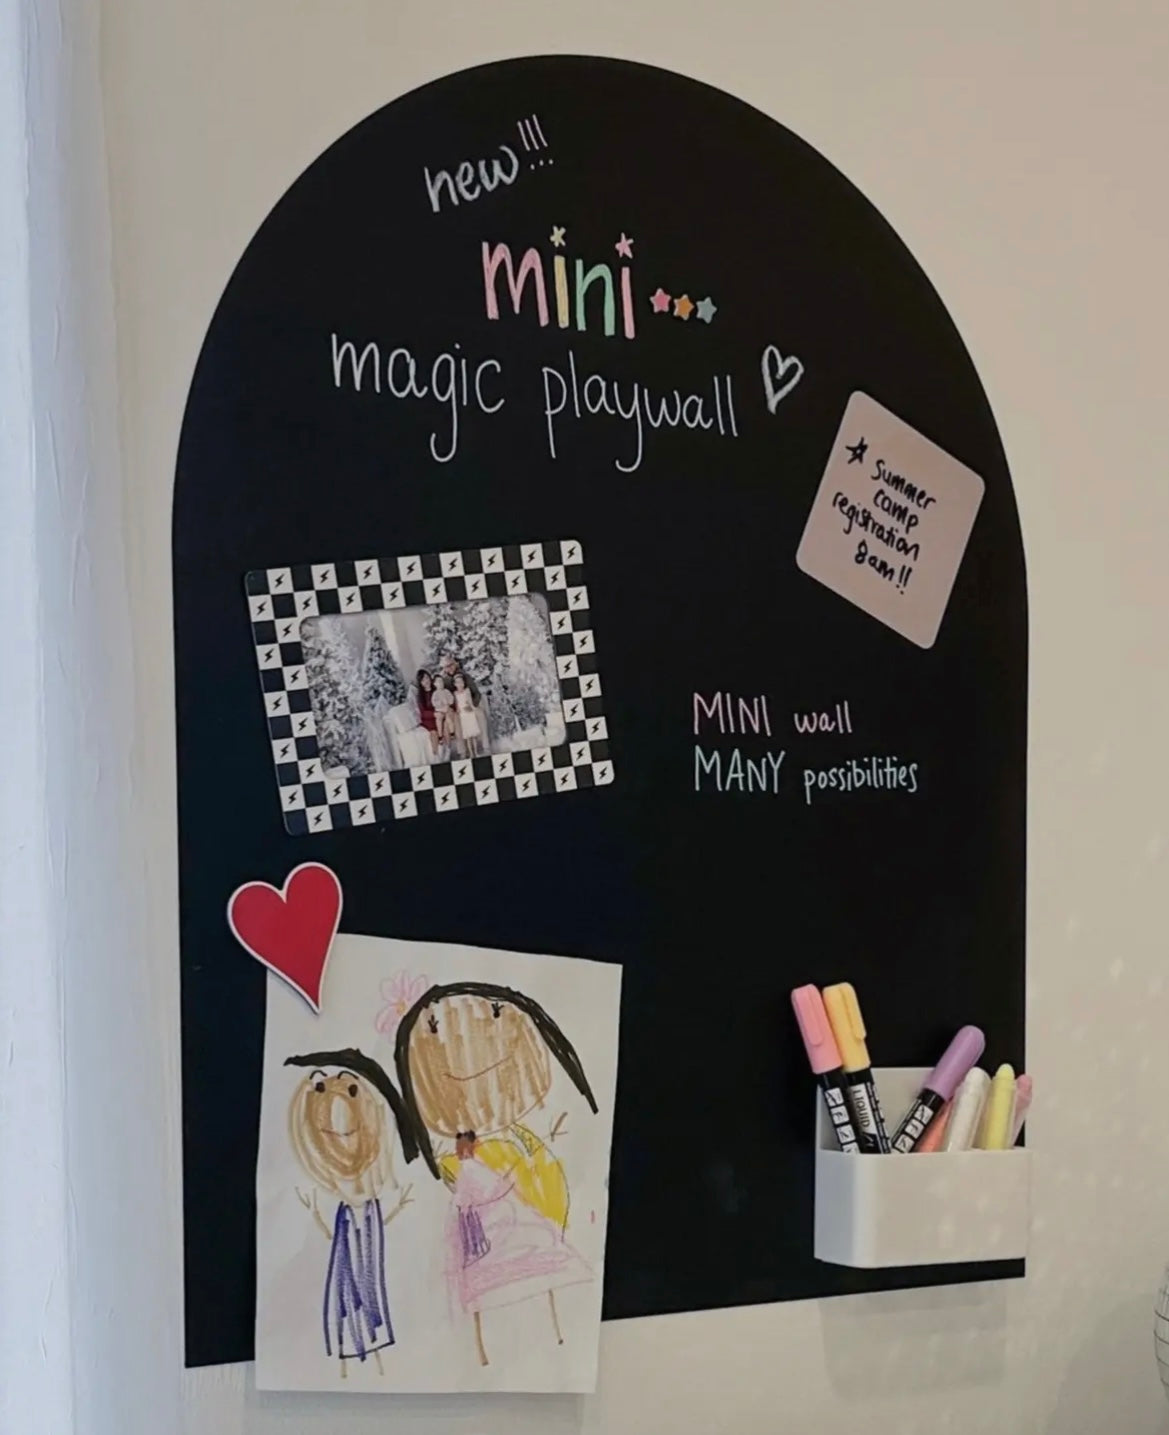 new!!!
mini
magic playwall
Summer
camp
registration
8am!!
MINI wall
MANY possibilities
LIQUID